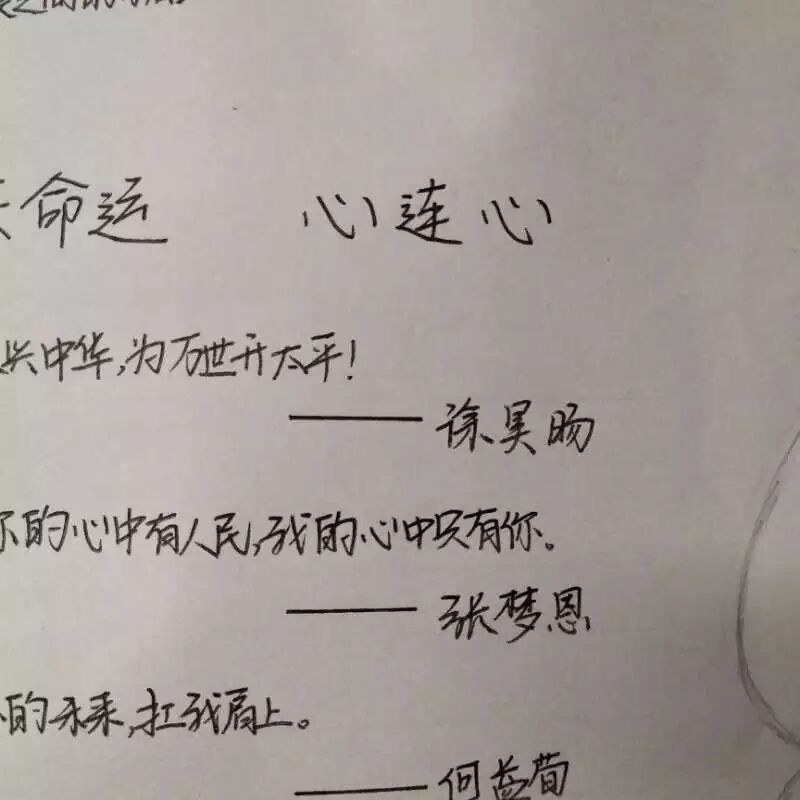 命运 心连心
兴中华,为万世开太平!
—— 徐昊旸
你的心中有人民,我的心中只有你。
—— 张梦恩
的未来,扛我肩上。
—— 何益荀